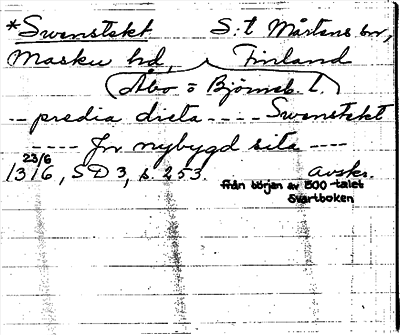 *Svenstekt S:t Mårtens sn,
Masku hd, Finland
(Åbo o Björneb. l.)
-- predia dicta ---- Svenstekt
---- Jn nybygd sita ----
23/6
1316, SD 3, s. 253. avskr.
från början av 500-talet
Svartboken